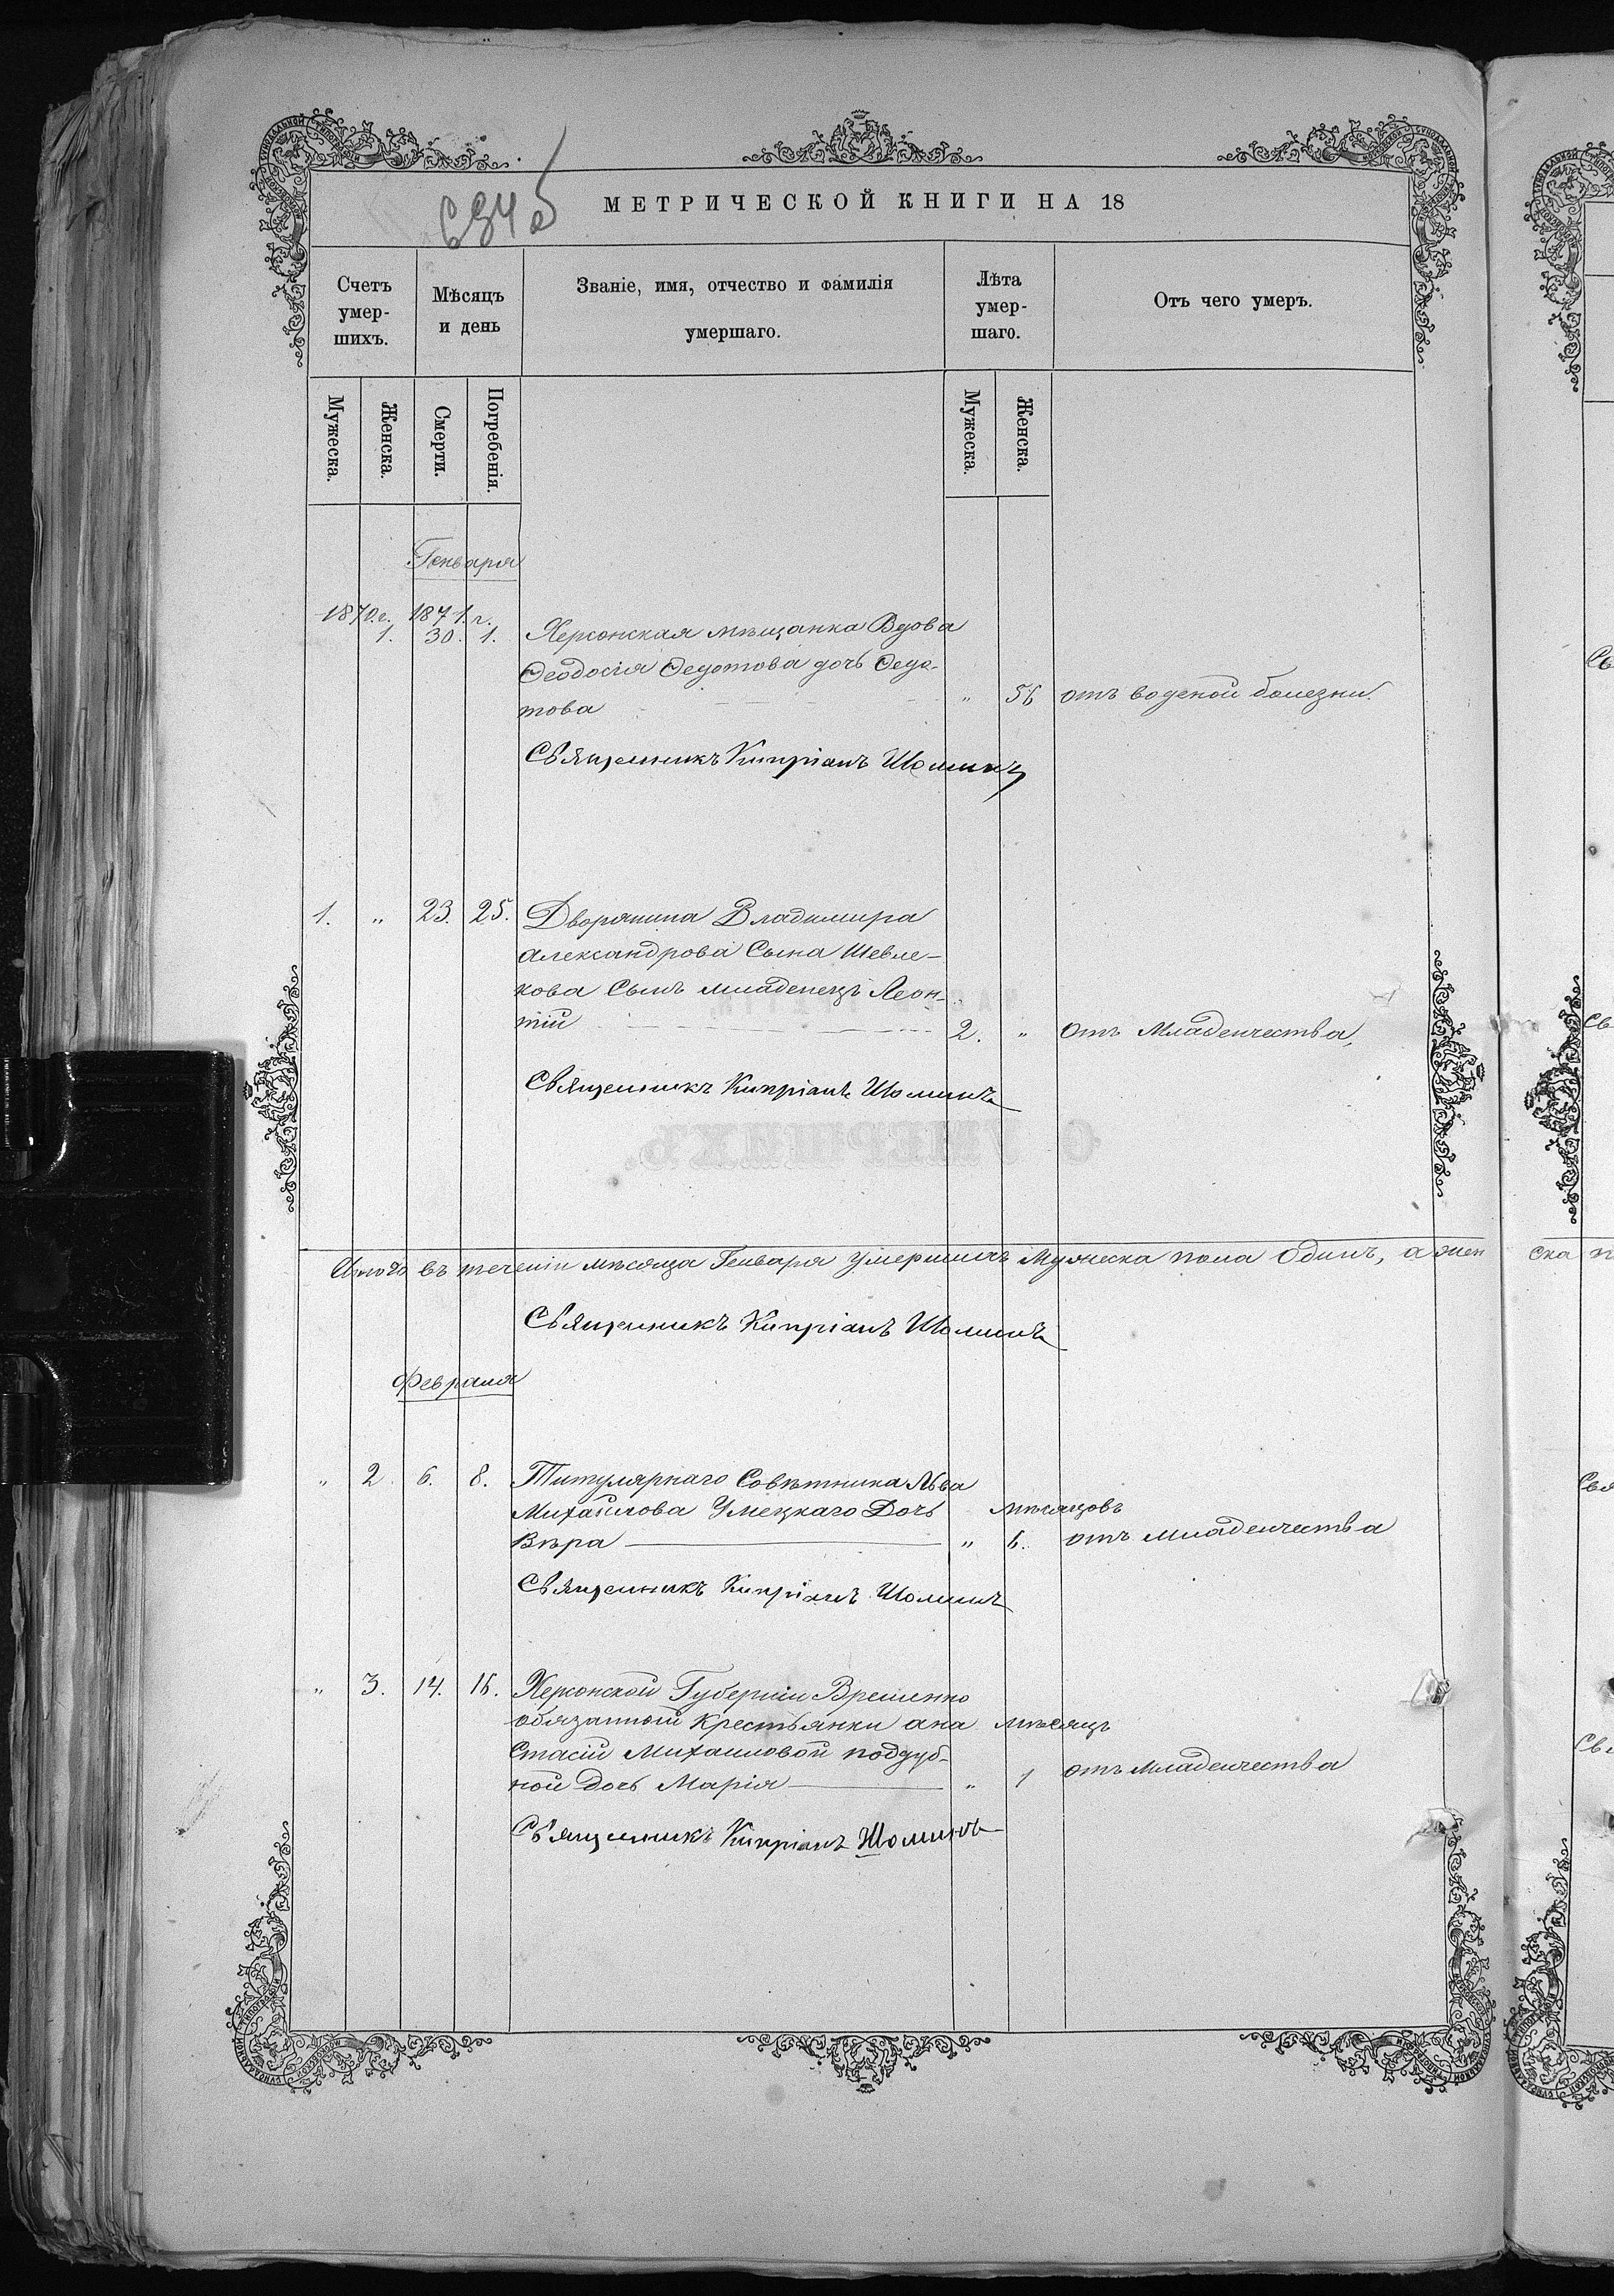 634 об
МЕТРИЧЕСКОЙ КНИГИ НА 18
Счетъ умер-шихъ.
Мѣсяцъ и день
Званіе, имя, отчество и фамилія умершаго.
Лѣта умер-шаго.
Отъ чего умеръ.
Мужеска.
Женска.
Смерти.
Погребенія.
Мужеска.
Женска.
Генваря
1870 г. 1871 г.
1. 30. 1. Херсонская мѣщанка Вдова
Ѳеодосія Ѳедотова дочь Ѳедо-
това " 56 отъ воденой болезни.
Священникъ Кипріанъ Шоминъ
1. " 23. 25. Дворянина Владимира
Александрова Сына Шевле-
кова Сынъ младенецъ Леон-
тій 2. " отъ Младенчества,
Священникъ Кипріанъ Шоминъ
Итого въ теченіи мѣсяца Генваря умершихъ Мужеска пола Одинъ, а жен ска п
Священникъ Кипріанъ Шоминъ
Февраля
" 2. 6. 8. Титулярнаго Совѣтника Льва
Михайлова Умецкаго Дочь мѣсяцовъ
Вѣра " 6. отъ младенчества
Священникъ Кипріанъ Шоминъ
" 3. 14. 16. Херсонской Губерніи Временно
обязанной крестьянки ана мѣсяцъ
стасіи Михаиловой поддуб-
ной дочь Марія " 1 отъ Младенчества
Священникъ Кипріанъ Шоминъ